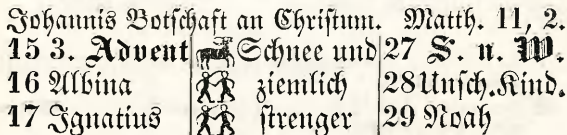 Johannis Botschaft an Christum. Matth. 11, 2.
15 3. Advent Schnee und 27 S. n. W.
16 Albina ziemlich 28 Unsch. Kind.
17 Ignatius strenger 29 Noah